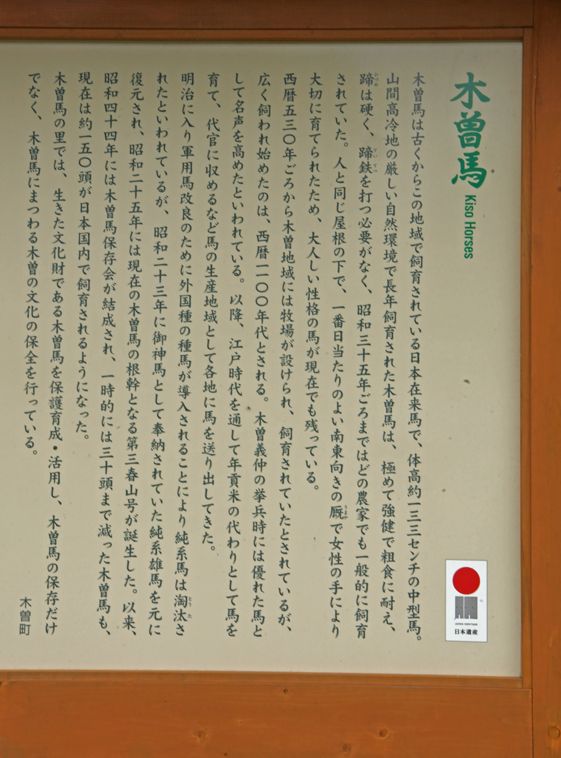 木曽馬 Kiso Horses
木曽馬は古くからこの地域で飼育されている日本在来馬で、体高約一三三センチの中型馬。
山間高冷地の厳しい自然環境で長年飼育された木曽馬は、極めて強健で粗食に耐え、
蹄は硬く、蹄鉄を打つ必要がなく、昭和三十五年ごろまではどの農家でも一般的に飼育
されていた。人と同じ屋根の下で、一番日当たりのよい南東向きの厩で女性の手により
大切に育てられたため、大人しい性格の馬が現在でも残っている。
西暦五三〇年ごろから木曽地域には牧場が設けられ、飼育されていたとされているが、
広く飼われ始めたのは、西暦一一〇〇年代とされる。木曽義仲の挙兵時には優れた馬と
して名声を高めたといわれている。以降、江戸時代を通して年貢米の代わりとして馬を
育て、代官に収めるなど馬の生産地域として各地に馬を送り出してきた。
明治に入り軍用馬改良のために外国種の種馬が導入されることにより純系馬は淘汰さ
れたといわれているが、昭和二十三年に御神馬として奉納されていた純系雄馬を元に
復元され、昭和二十五年には現在の木曽馬の根幹となる第三春山号が誕生した。以来、
昭和四十四年には木曽馬保存会が結成され、一時的には三十頭まで減った木曽馬も、
現在は約一五〇頭が日本国内で飼育されるようになった。
木曽馬の里では、生きた文化財である木曽馬を保護育成・活用し、木曽馬の保存だけ
でなく、木曽馬にまつわる木曽の文化の保全を行っている。
木曽町
JAPAN HERITAGE
日本遺産